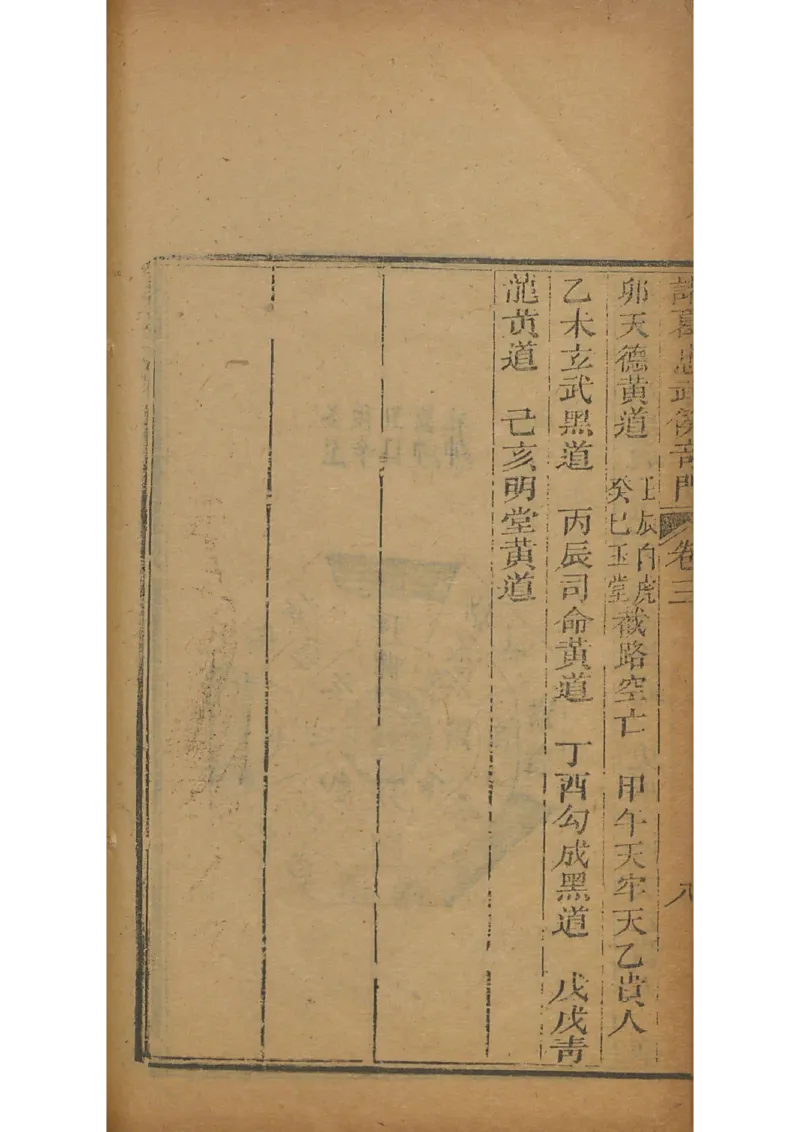 諸葛忠武侯奇門 卷三 八
卯天德黃道 壬辰白虎 癸巳玉堂 截路空亡 甲午天牢天乙貴人
乙未玄武黑道 丙辰司命黃道 丁酉勾成黑道 戊戌青
龍黃道 己亥明堂黃道